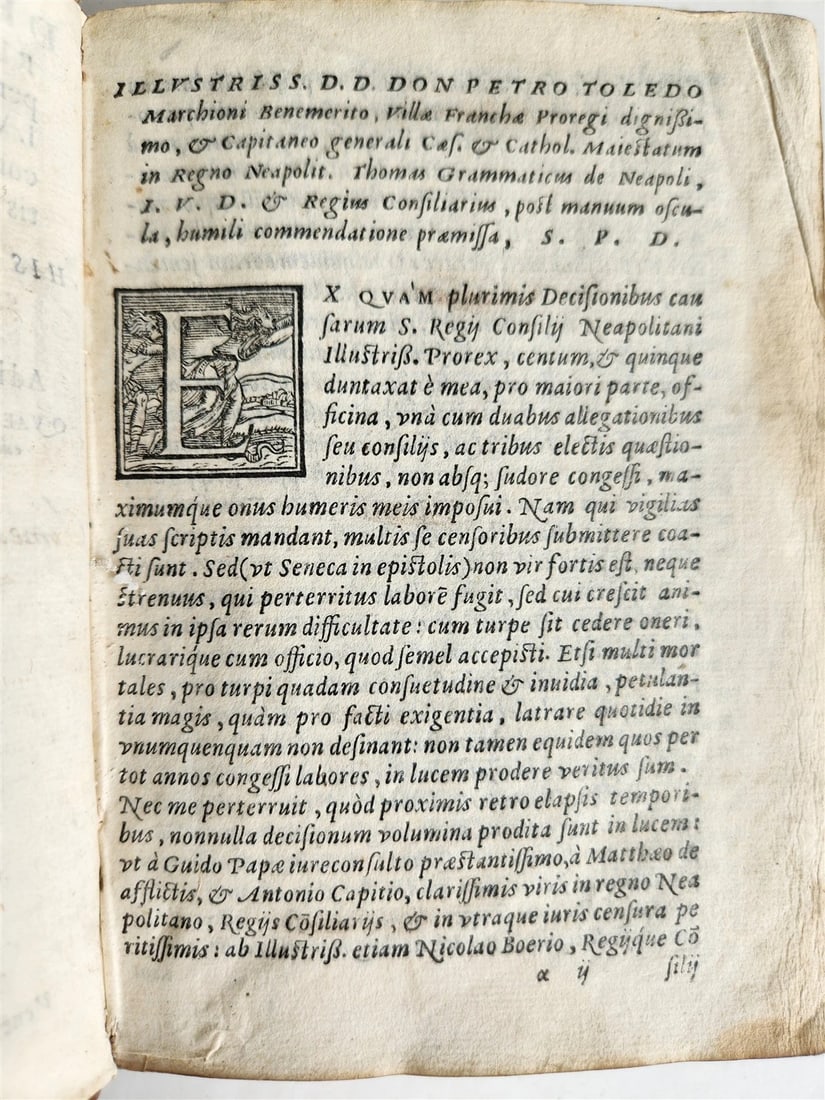 ILLVSTRISS. D. D. DON PETRO TOLEDO
Marchioni Benemerito, Villæ Franchæ Proregi dignißi-
mo, & Capitaneo generali Cæſ. & Cathol. Maiestatum
in Regno Neapolit. Thomas Grammaticus de Neapoli,
I. V. D. & Regius Conſiliarius, post manuum oſcu-
la, humili commendatione præmiſſa, S. P. D.
EX QVA'M plurimis Deciſionibus cau
ſarum S. Regij Conſilij Neapolitani
Illustriß. Prorex, centum, & quinque
duntaxat è mea, pro maiori parte, of-
ficina, vnà cum duabus allegationibus
ſeu conſilijs, ac tribus electis quæſtio-
nibus, non abſq; ſudore congeſſi, ma-
ximumq́ue onus humeris meis impoſui. Nam qui vigilias
ſuas ſcriptis mandant, multis ſe cenſoribus ſubmittere coa-
cti ſunt. Sed (vt Seneca in epistolis) non vir fortis est, neque
strenuus, qui perterritus laborē fugit, ſed cui creſcit ani-
mus in ipſa rerum difficultate: cum turpe ſit cedere oneri,
lucrariq́ue cum officio, quod ſemel accepisti. Etſi multi mor
tales, pro turpi quadam conſuetudine & inuidia, petulan-
tia magis, quàm pro facti exigentia, latrare quotidie in
vnumquenquam non deſinant: non tamen equidem quos per
tot annos congeſſi labores, in lucem prodere veritus ſum.
Nec me perterruit, quòd proximis retro elapſis tempori-
bus, nonnulla deciſionum volumina prodita ſunt in lucem:
vt à Guido Papæ iureconſulto præstantiſſimo, à Matthæo de
afflictis, & Antonio Capitio, clariſſimis viris in regno Nea
politano, Regijs Cōſiliarijs, & in vtraque iuris cenſura pe
ritiſſimis: ab Illustriß. etiam Nicolao Boerio, Regijq́ue Cō
α ij ſilij